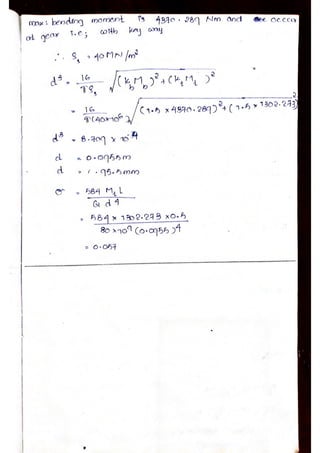 max: bending moment is 4870.289 Nm and occcu
at gear i.e; with key way
∴ Ss = 40 MN/m²
d³ = 16/πSs √((kb Mb)² + (kt Mt)²
= 16/π(40×10⁶) √(1.5 × 4870.289)² + (1.5 × 1302.273)²
d³ = 8.709 × 10⁻⁴
d = 0.0955m
d = 95.5mm
σ = 584 Mt l / G d⁴
= 584 × 1302.273 × 0.5 / 80 × 10⁹ (0.0955)⁴
= 0.057